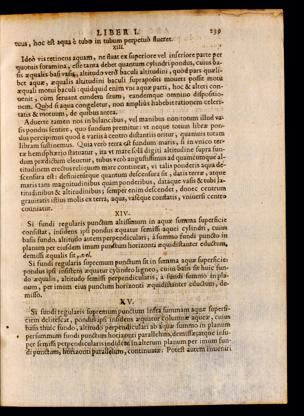 LIBER I. 239
tuus, hoc est aqua è tubo in tubum perpetuò flueret.
XIII.
Ideò vis retinens aquam, ne fluat ex superiore vel inferiore parte per
quotuis foramina, esse tanta debet quantum cylindri pondus, cuius ba-
sis æqualis basi vasis, altitudo verò baculi altitudini, quòd pars quæli-
bet aquæ, æqualis altitudini baculi suprapositi moueri posset motu
æquali motui baculi: quidquid enim vni aquæ parti, hoc & alteri con-
uenit, cùm seruent eundem situm, eandemque omnino dispositio-
nem. Quòd si aqua congeletur, non ampliùs habebit rationem celeri-
tatis & motuum, de quibus antea.
Aduerte tamen nos in bilancibus, vel manibus non totum illud va-
sis pondus sentire, quo fundum premitur: vt neque totum libræ pon-
dus percipimus quod è variis à centro distantiis oritur, quamuis totam
libram sustineamus. Quia verò terra est fundum maris, si in vnico ter-
ræ hemisphærio statuatur, ita vt mare
dum prædictum eleuetur, tubus verò angustissimus ad quamcumque al-
titudinem erectus reliquum mare contineat, vi talis ponderis aqua de-
scensura est: desinetenimque quantum descensura sit, datis terræ, atque
maris tam magnitudinibus quàm ponderibus, datáque vasis & tubi la-
titudinibus & altitudinibus; semper enim descendet, donec centrum
grauitatis istius molis ex terra, aqua, vaséque constatis, vniuersi centro
couniatur.
XIV.
Si fundi regularis punctum altissimum in aquæ summa superficie
consistat, insidens ipsi pondus æquatur semissi aquei cylindri, cuius
basis fundo, altitudo autem perpendiculari, à summo fundi puncto in
planum per eiusdem imum punctum horizonti æquidistanter eductum,
demissæ æqualis sit,
Si fundi regularis supremum punctum sit in summa aquæ superficie:
pondus ipsi insistens æquatur cylindro ligneo, cuius basis sit huic fun-
do æqualis, altitudo semissi perpendicularis, à fundi summo in pla-
num, per imum eius punctum horizonti æquidistanter eductum, de-
misso.
XV.
Si fundi regularis supremum punctum infra summam aquæ superfi-
ciem delitescat, pondus ipsi insidens æquatur columnæ aqueæ, cuius
basis fit huic fundo, altitudo perpendiculari ab aquæ summo in planum
per summum fundi punctum horizonti parallelum, demissæ, atque insu-
per semissi perpendicularis indidem in alterum planum per imum fun-
di punctum, horizonti parallelum, continuatæ: Potest autem inueniri